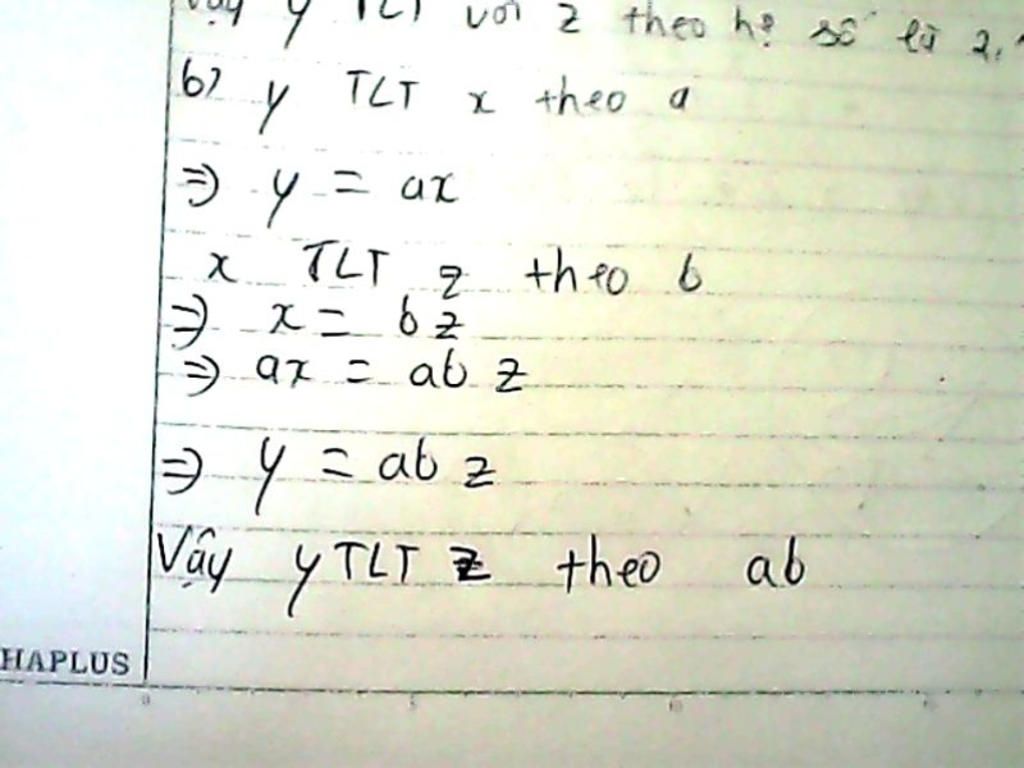 Vậy y TLT với z theo hệ số là 2.
b) y TLT x theo a
=> y = ax
x TLT z theo b
=> x = bz
=> ax = ab z
=> y = ab z
Vậy y TLT z theo ab
HAPLUS
0 5 10